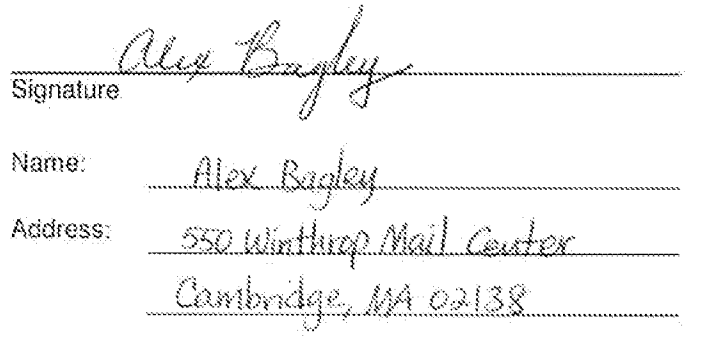 Alex Bagley
Signature
Name: Alex Bagley
Address: 550 Winthrop Mail Center
Cambridge, MA 02138